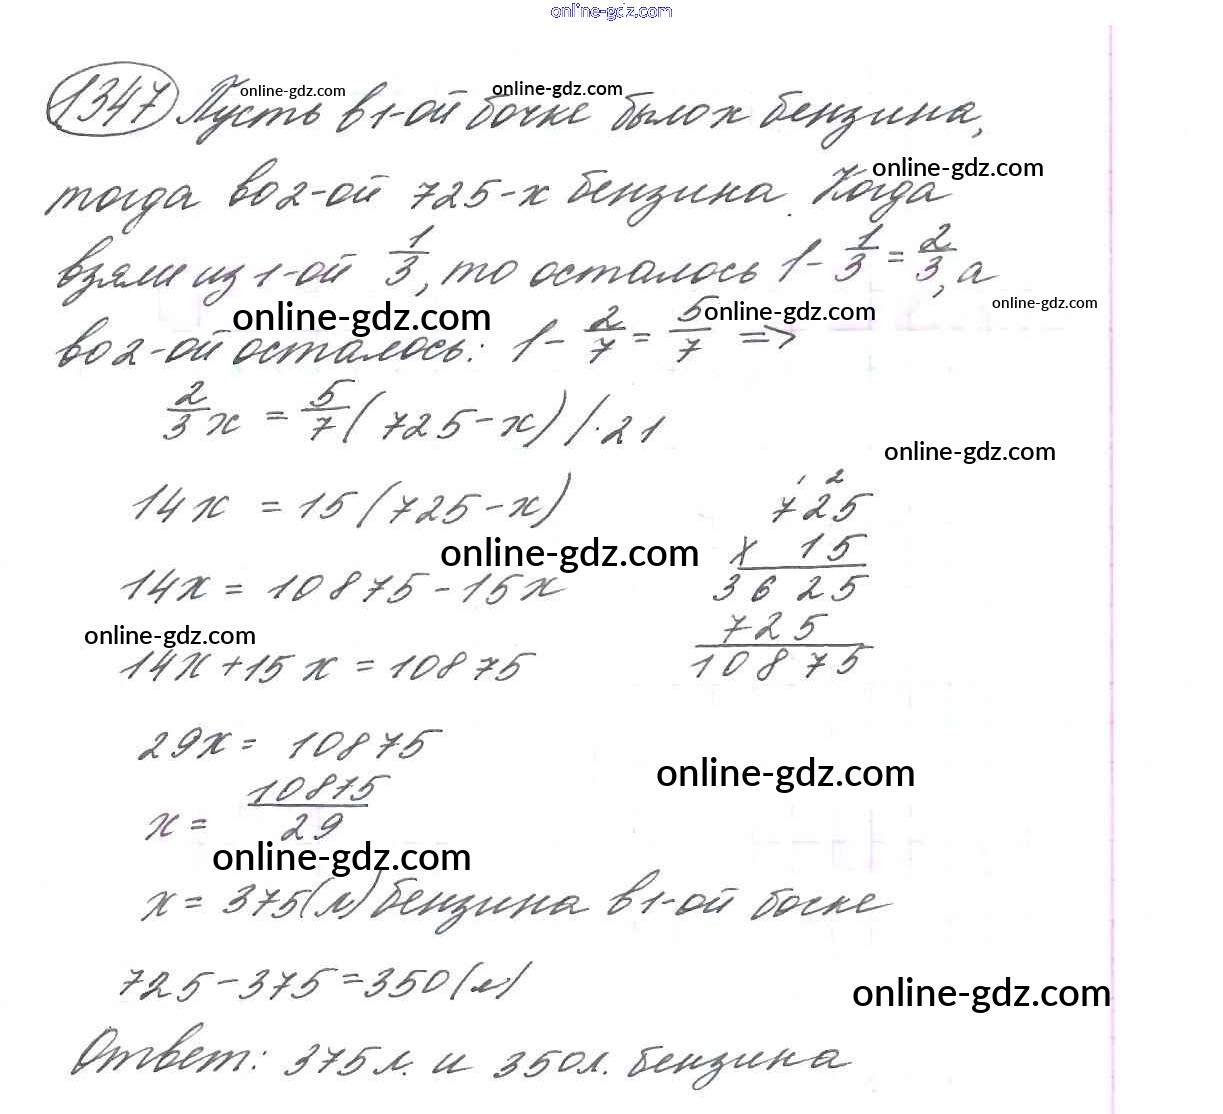 online-gdz.com
1347 Пусть в 1-ой бочке было x бензина,
online-gdz.com online-gdz.com
тогда во 2-ой 725-x бензина. Когда
online-gdz.com
взяли из 1-ой 1/3, то осталось 1 - 1/3 = 2/3, а
online-gdz.com online-gdz.com online-gdz.com
во 2-ой осталось: 1 - 2/7 = 5/7 =>
2/3 x = 5/7 (725-x) /·21
online-gdz.com
14x = 15(725-x)
online-gdz.com
14x = 10875 - 15x
online-gdz.com
14x + 15x = 10875
29x = 10875
online-gdz.com
x = 10875/29
online-gdz.com
x = 375(л) бензина в 1-ой боске
725 - 375 = 350(л)
online-gdz.com
Ответ: 375л. и 350л. бензина
1 2
725
x 15
3625
725
10875